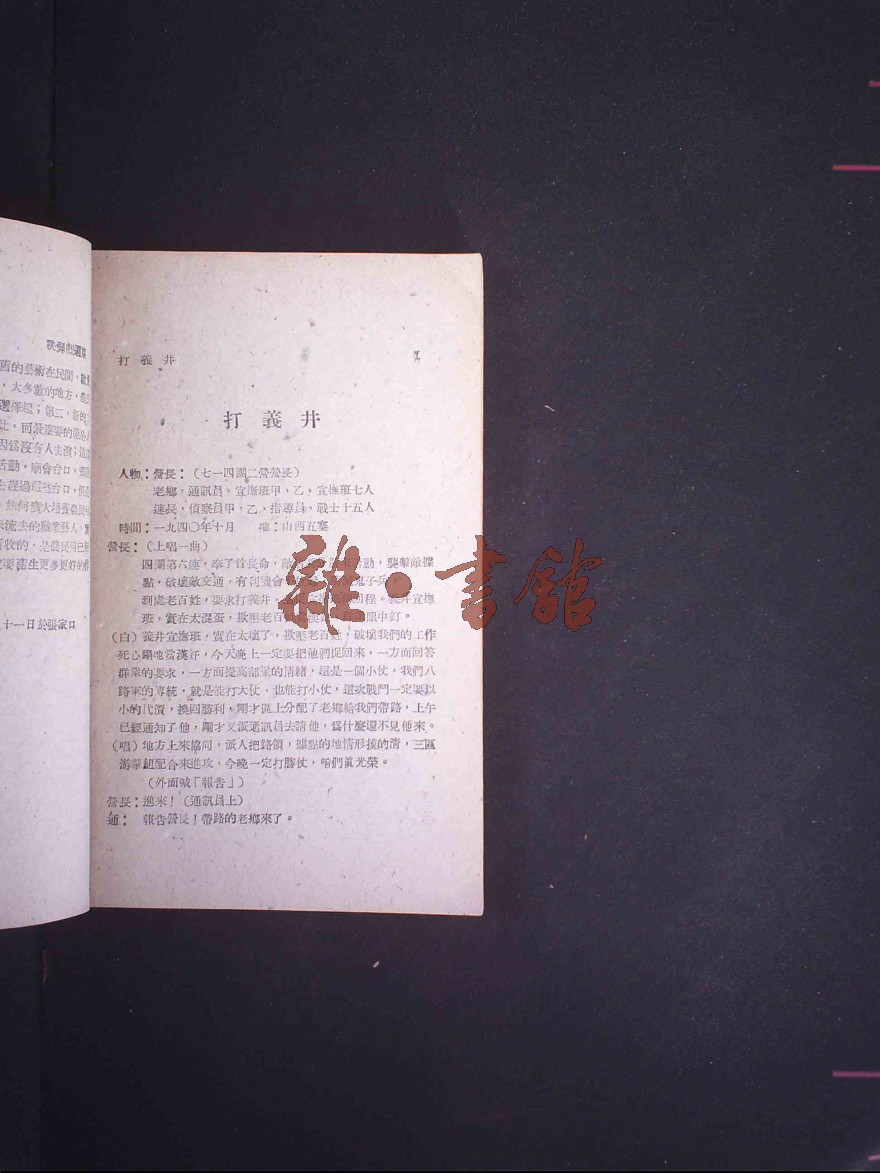 秧歌劇選集
舊的藝術在民間,
,大多數的地方,
選擇起;第二,新的
社,而最重要的還是
因爲沒有人去演;這
活動,廟會台口,
去趕過這些台口,但
。如何廣大培養農民
未流去的職業藝人,
所收的,是農民自己
定要產生更多更好的作
十一日於張家口
打義井
打義井
人物:營長:(七一四團二營營長)
老鄉,通訊員、宣撫班甲,乙,宣撫班七人
連長,偵察員甲,乙、指導員、戰士十五人
時間:一九四〇年十月 地:山西五寨
營長:(上唱一曲)
四團第六連,奉了首長命,敵活動,襲擊敵據
點,破壞敵交通,有利機會鬼子兵
到處老百姓,要求打義井,回程。義井宣撫
班,實在太混蛋,欺壓老百眼中釘。
(白)義井宣撫班,實在太壞了,欺壓老百姓,破壞我們的工作
死心蹋地當漢奸,今天晚上一定要把他們捉回來,一方面回答
群衆的要求,一方面提高部隊的情緒,這是一個小仗,我們八
路軍的專統,就是能打大仗,也能打小仗,這次戰鬥一定要以
小的代價,換回勝利,剛才區上分配了老鄉給我們帶路,上午
已經通知了他,剛才又派通訊員去請他,爲什麼還不見他來。
(唱)地方上來協同,派人把路領,據點的地情形摸的清,三區
游擊組配合來進攻,今晚一定打勝仗,咱們眞光榮。
(外面喊「報告」)
營長:進來!(通訊員上)
通:報告營長!帶路的老鄉來了。
雜·書館